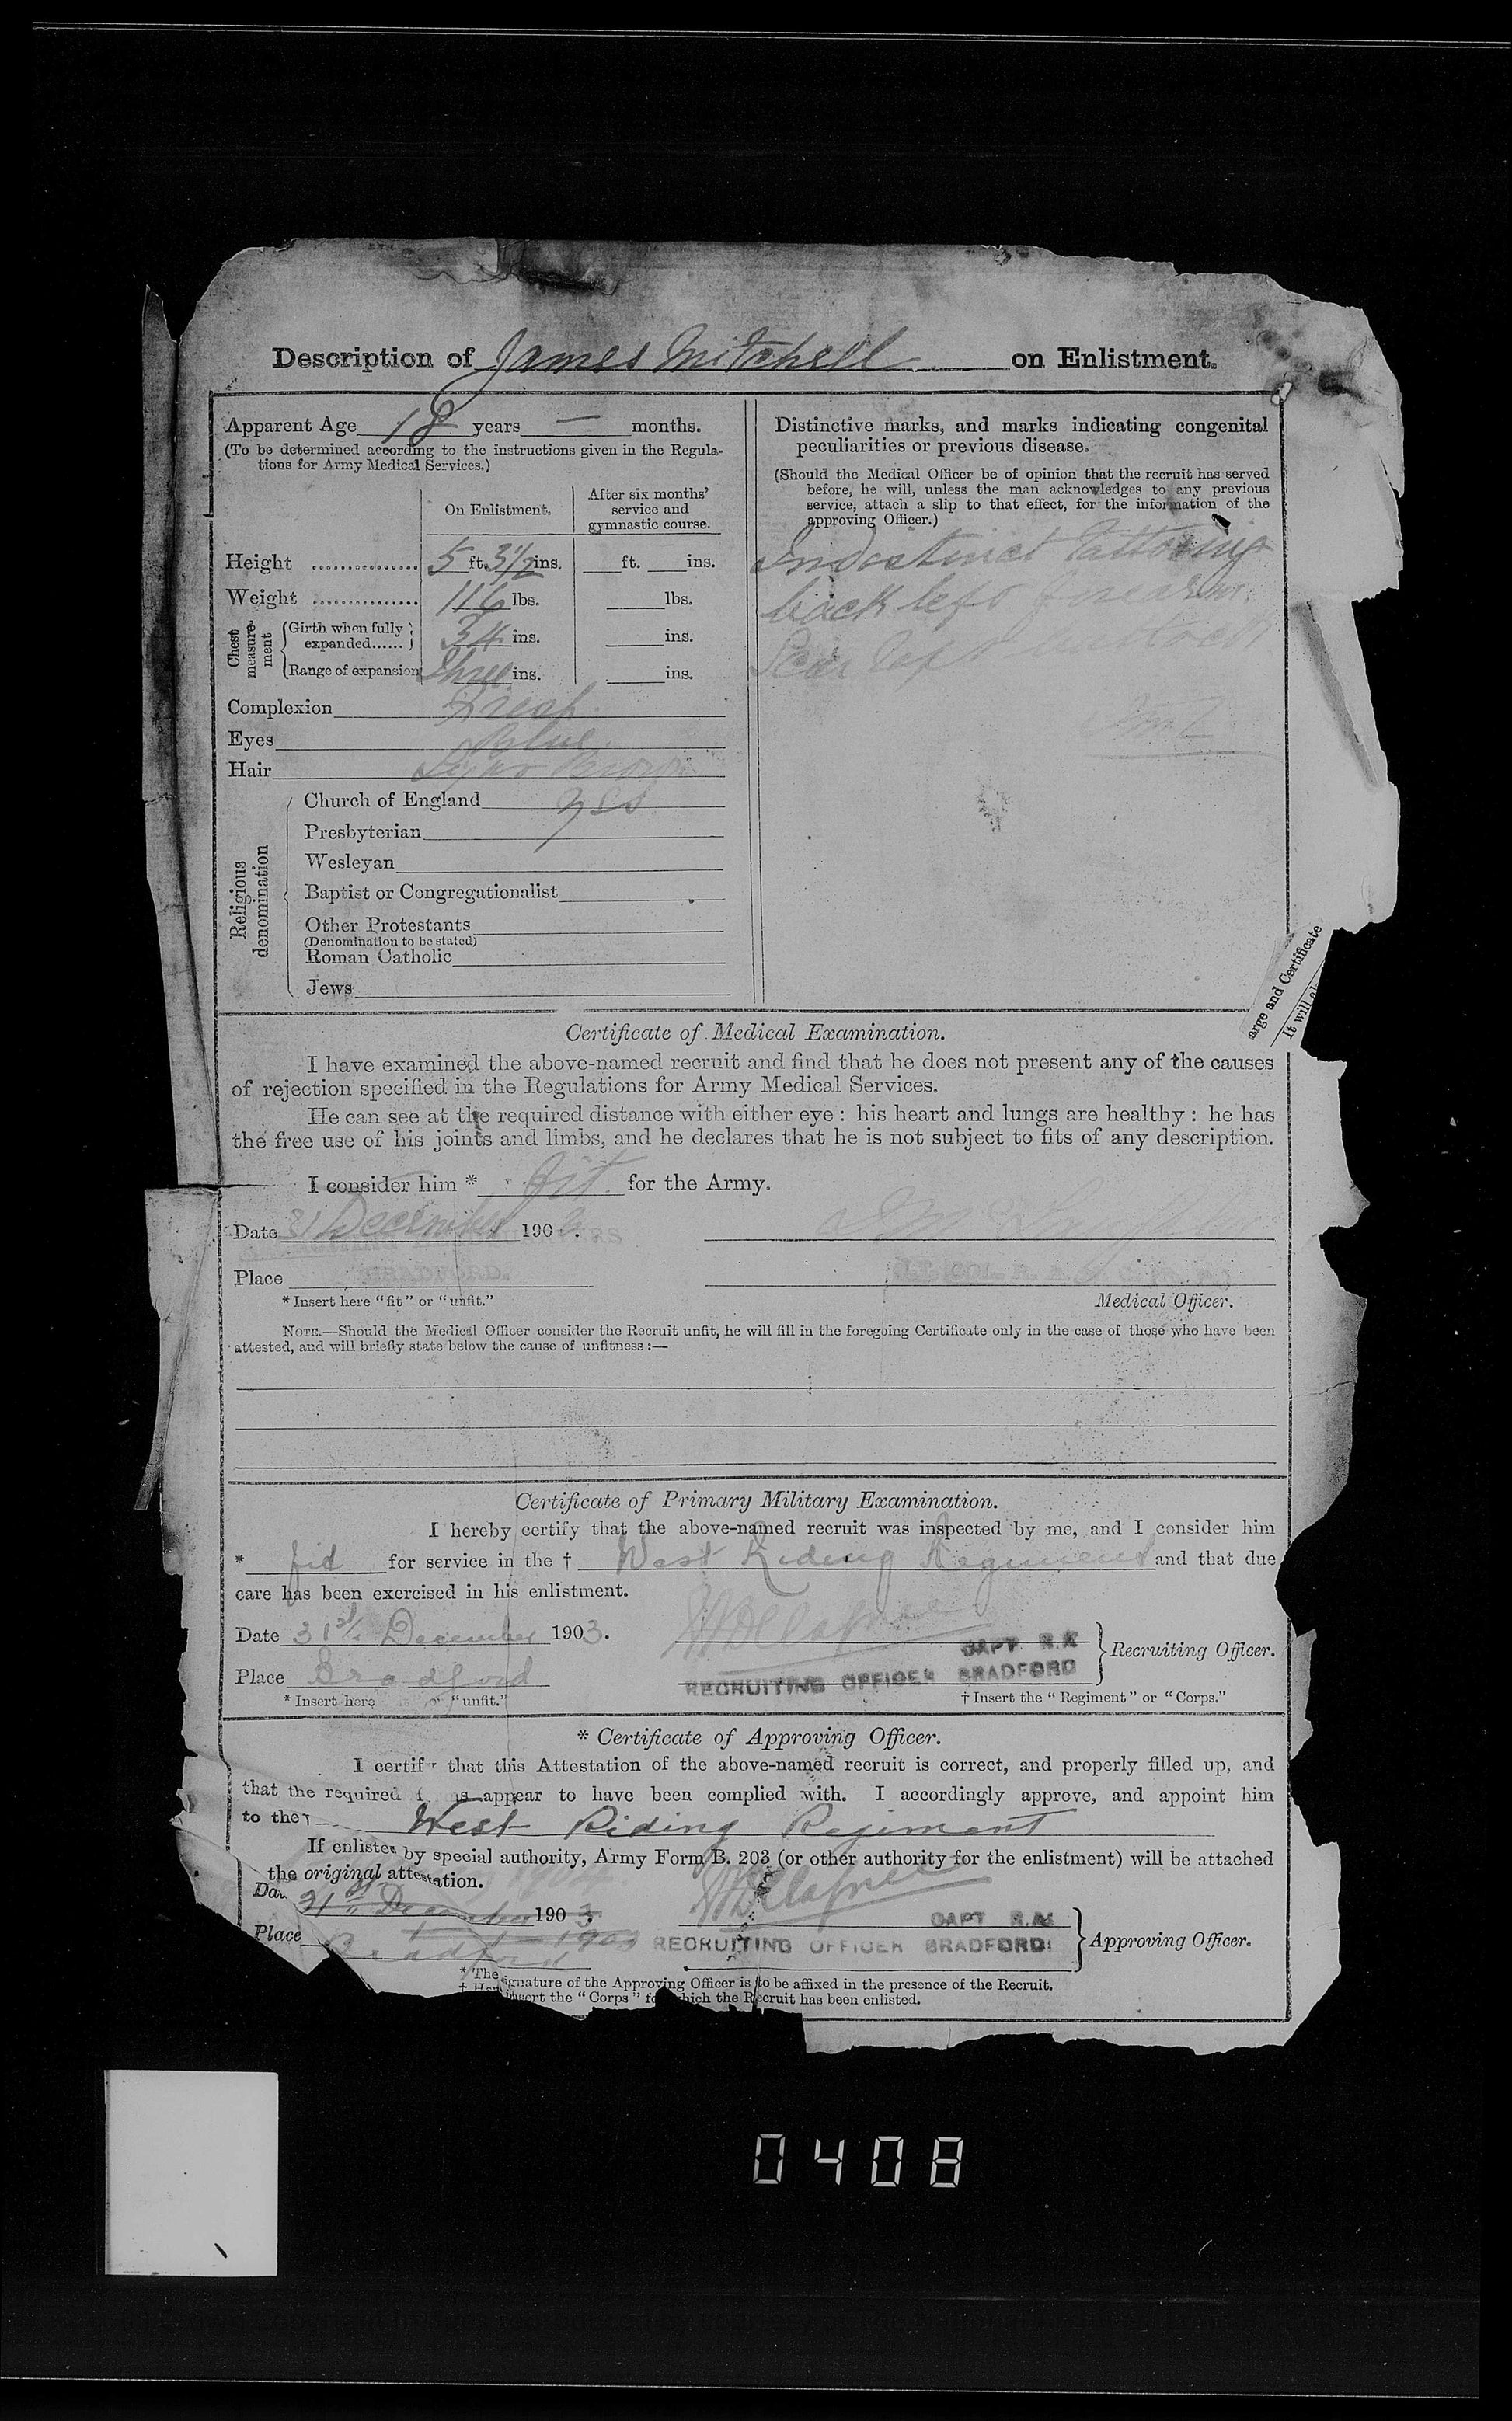 Description of James Mitchell on Enlistment.
Apparent Age 18 years — months.
(To be determined according to the instructions given in the Regula-
tions for Army Medical Services.)
On Enlistment.
After six months'
service and
gymnastic course.
Height 5 ft. 3½ ins. ft. ins.
Weight 116 lbs. lbs.
Chest measure-ment
Girth when fully expanded...... 34 ins. ins.
Range of expansion Three ins. ins.
Complexion Fresh.
Eyes Blue.
Hair Light Brown
Religious denomination
Church of England yes
Presbyterian
Wesleyan
Baptist or Congregationalist
Other Protestants
(Denomination to be stated)
Roman Catholic
Jews
Distinctive marks, and marks indicating congenital
peculiarities or previous disease.
(Should the Medical Officer be of opinion that the recruit has served
before, he will, unless the man acknowledges to any previous
service, attach a slip to that effect, for the information of the
approving Officer.)
Indistinct Tattooing
back left forearm.
Scar left
arge and Certificate
It will
Certificate of Medical Examination.
I have examined the above-named recruit and find that he does not present any of the causes
of rejection specified in the Regulations for Army Medical Services.
He can see at the required distance with either eye : his heart and lungs are healthy : he has
the free use of his joints and limbs, and he declares that he is not subject to fits of any description.
I consider him * fit. for the Army.
Date 31 December 190 .
Place BRADFORD.
LT. COL. R. A.
* Insert here "fit" or "unfit."
Medical Officer.
NOTE.—Should the Medical Officer consider the Recruit unfit, he will fill in the foregoing Certificate only in the case of those who have been
attested, and will briefly state below the cause of unfitness :—
Certificate of Primary Military Examination.
I hereby certify that the above-named recruit was inspected by me, and I consider him
* fit for service in the † West Riding Regiment and that due
care has been exercised in his enlistment.
Date 31st December 1903.
CAPT R.
Recruiting Officer.
Place Bradford
RECRUITING OFFICER BRADFORD
* Insert here or "unfit."
† Insert the "Regiment" or "Corps."
* Certificate of Approving Officer.
I certify that this Attestation of the above-named recruit is correct, and properly filled up, and
that the required appear to have been complied with. I accordingly approve, and appoint him
to the † West Riding Regiment
If enlisted by special authority, Army Form B. 203 (or other authority for the enlistment) will be attached
the original attestation.
Da 31st December 1903
CAPT R.
Place Bradford
RECRUITING OFFICER BRADFORD
Approving Officer.
* The signature of the Approving Officer is to be affixed in the presence of the Recruit.
insert the "Corps" for which the Recruit has been enlisted.
0408